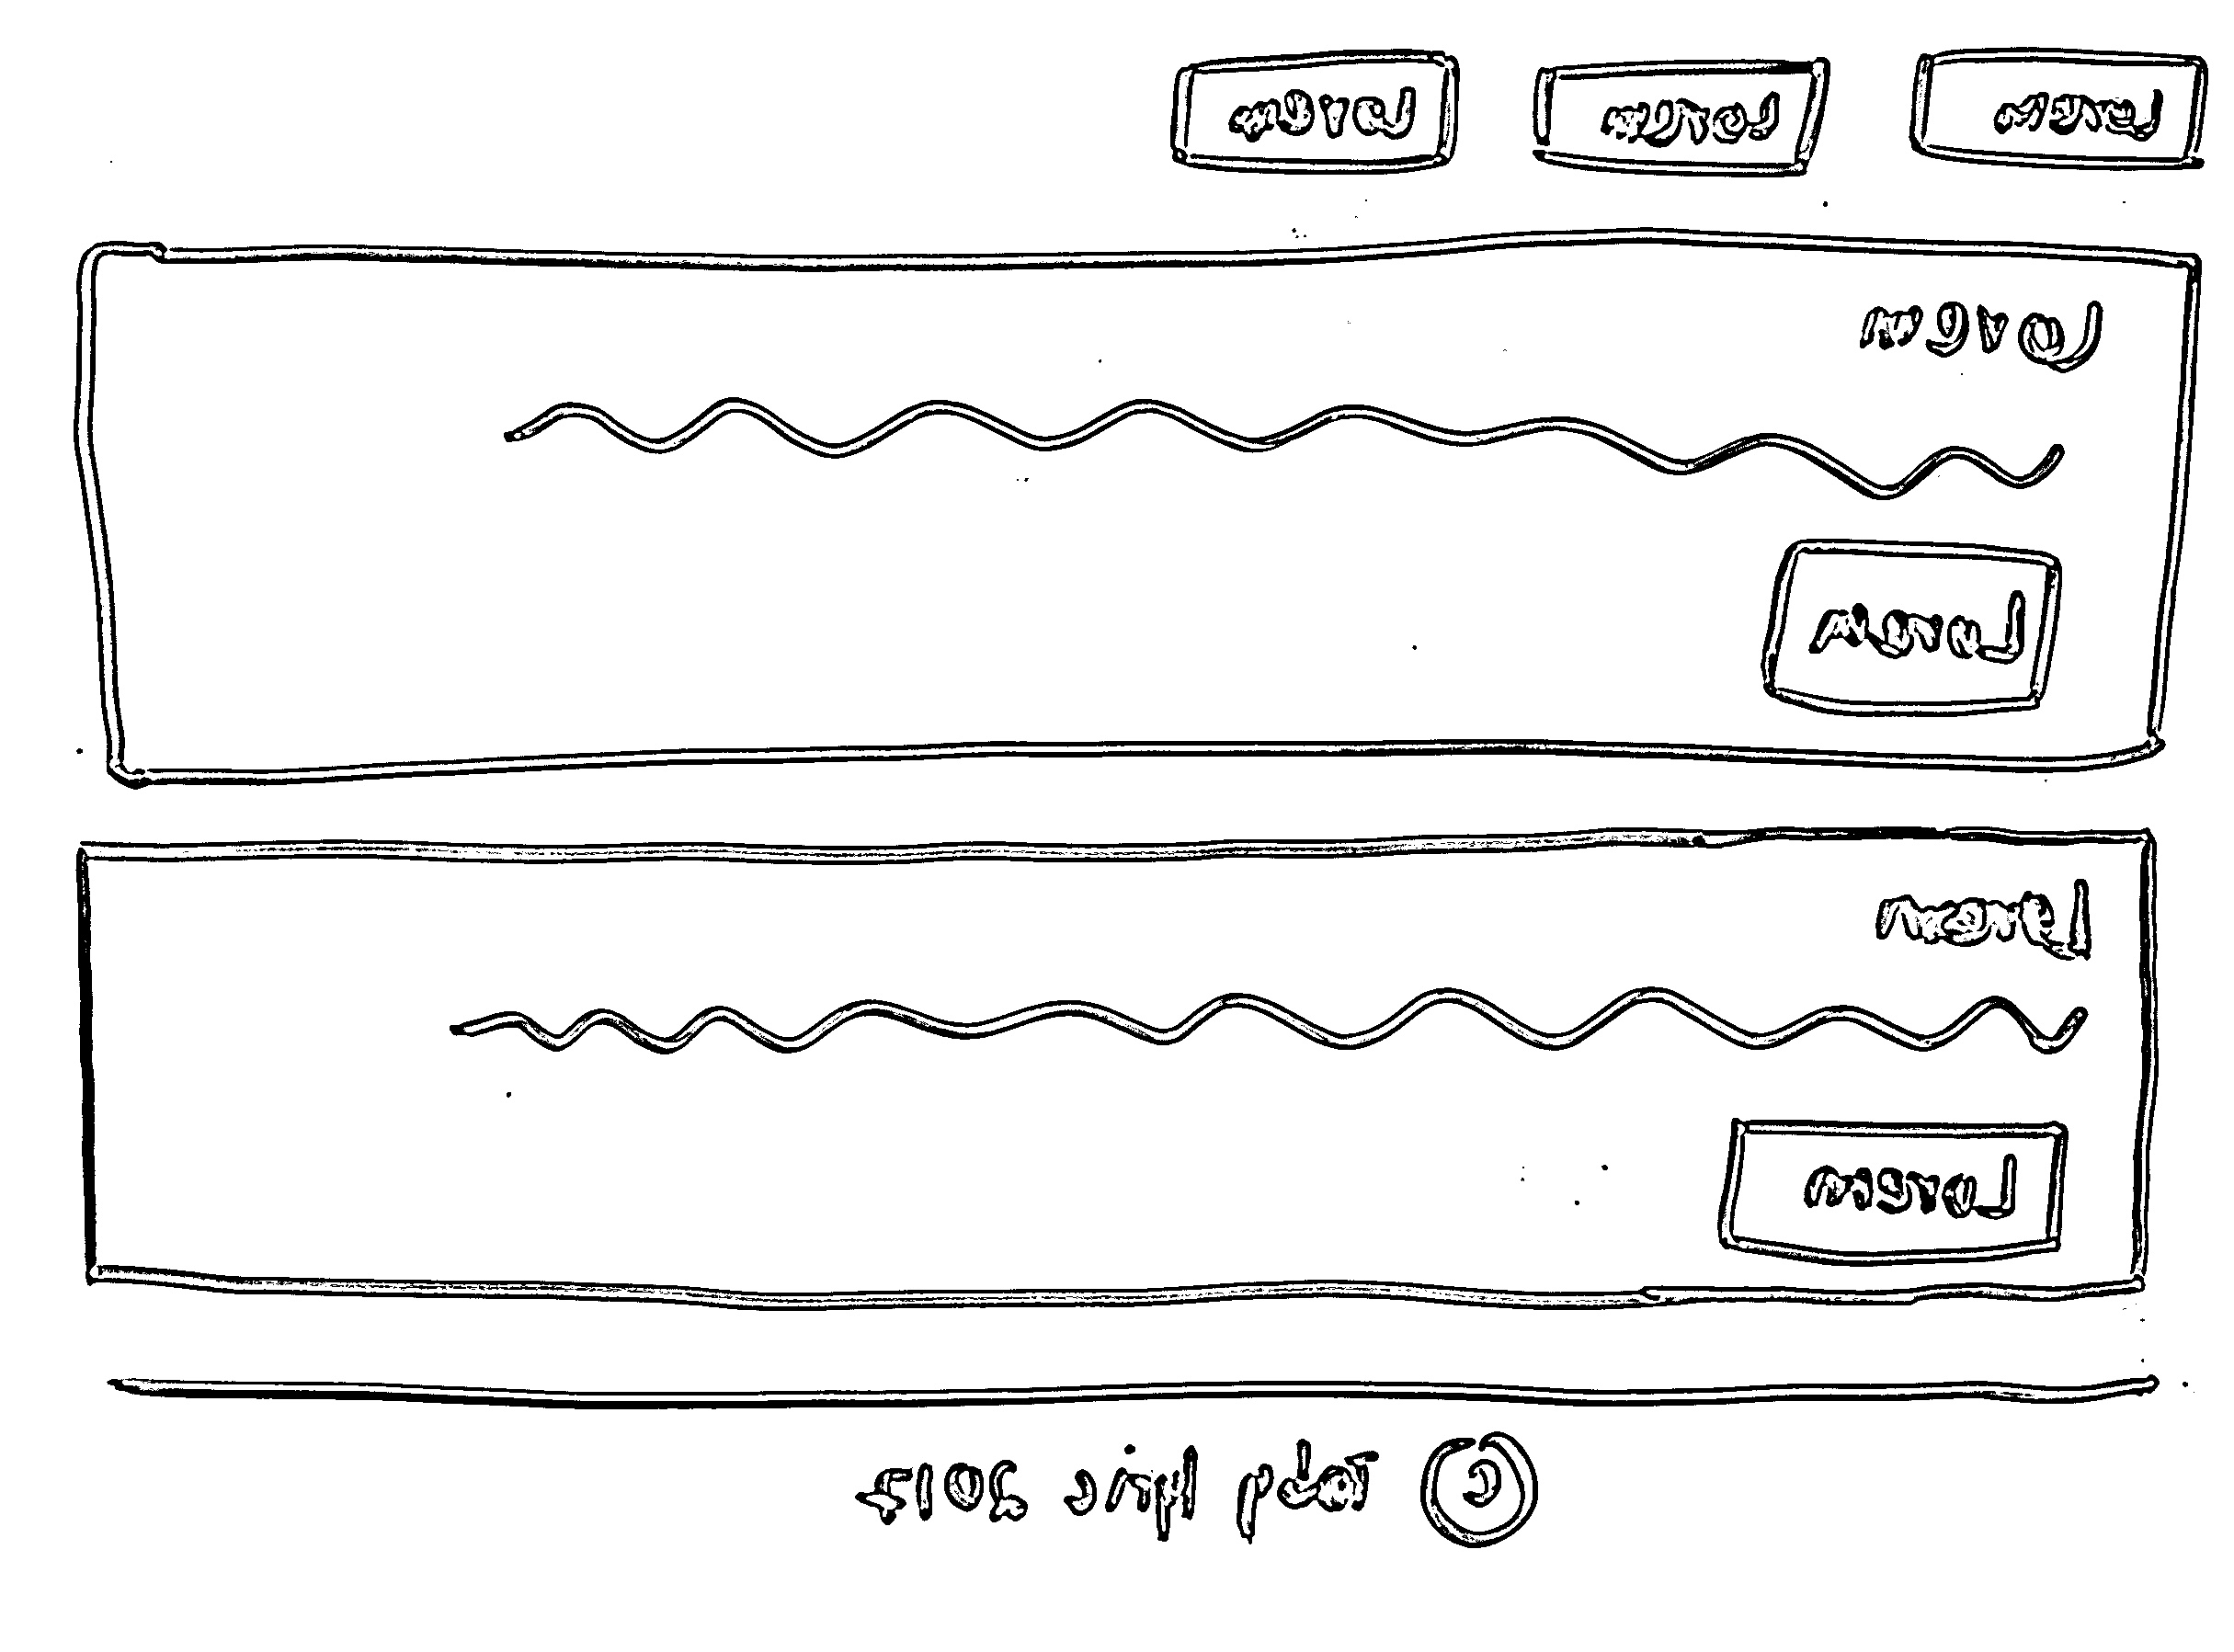 Lorem Lorem Lorem
Lorem
Lorem
Lorem
Lorem
© 2015